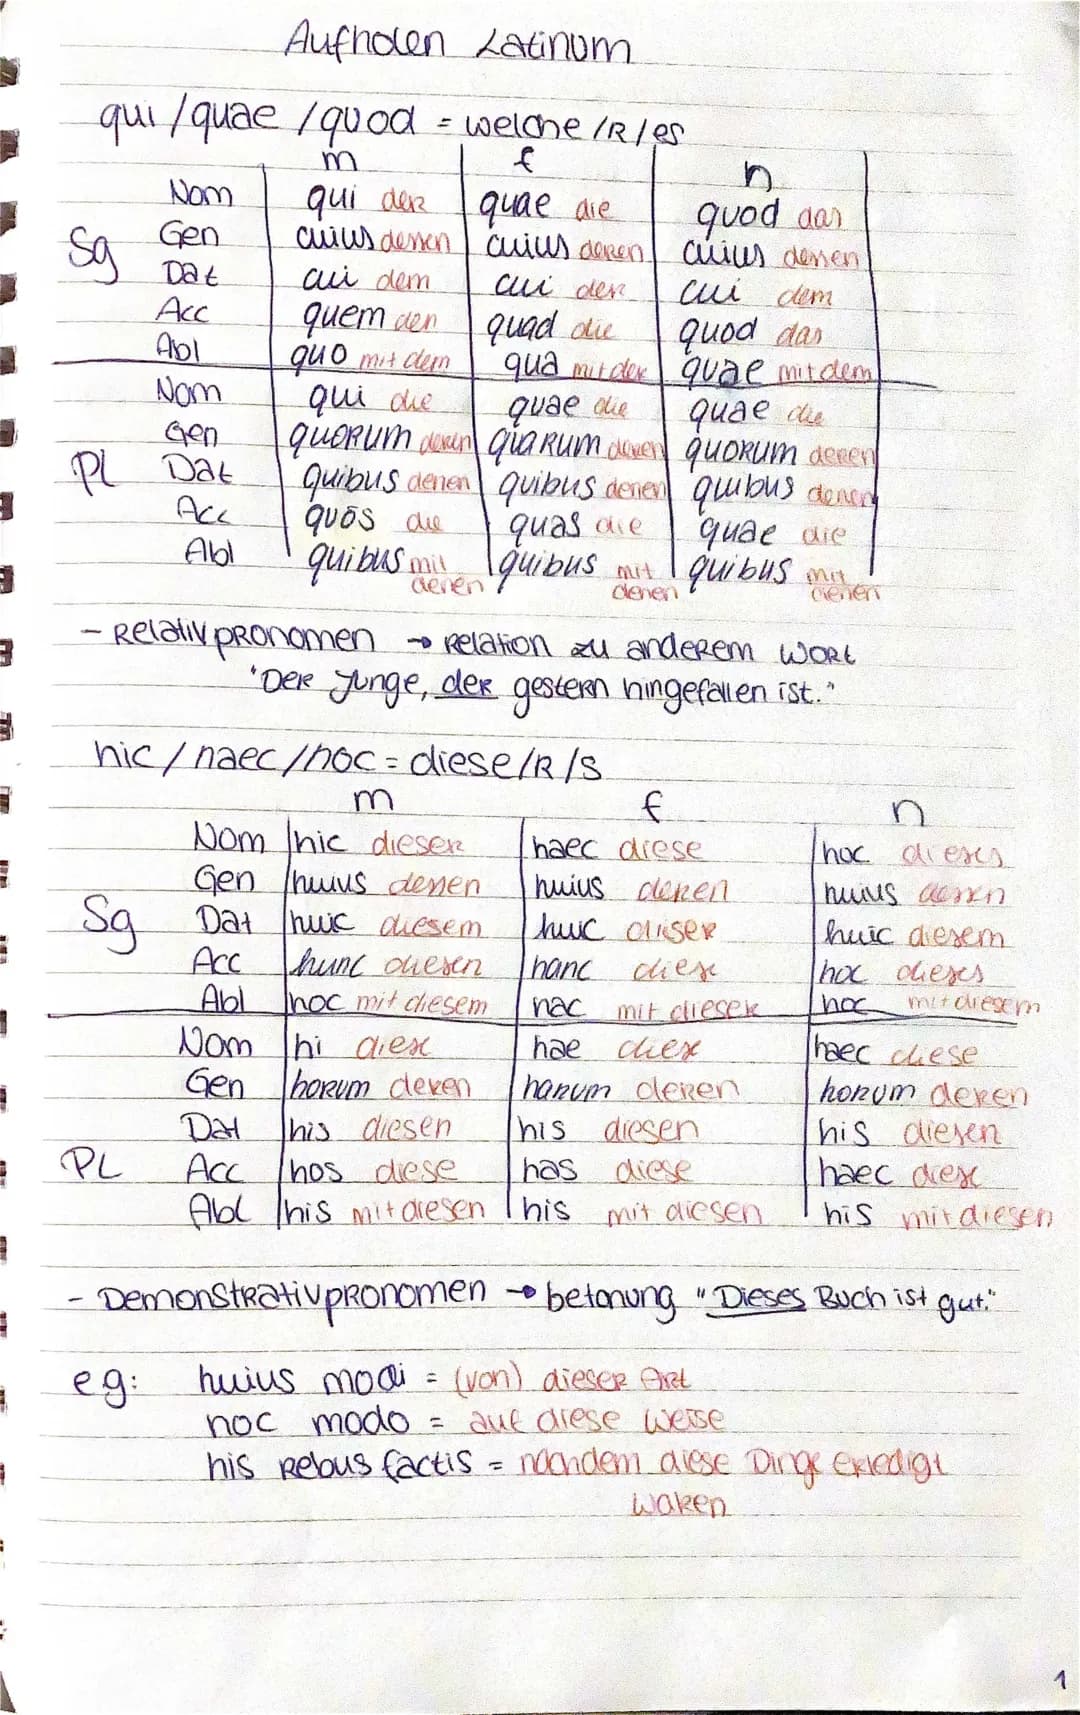 Aufholen Latinum
qui / quae / quod = welche /R / es
m f n
Nom qui der quae die quod das
Sg Gen cuius dessen cuius deren cuius dessen
Dat cui dem cui der cui dem
Acc quem den quad die quod das
Abl quo mit dem qua mit der quae mit dem
Nom qui die quae die quae die
Gen quorum deren quarum deren quorum deren
Pl Dat quibus denen quibus denen quibus denen
Acc quos die quas die quae die
Abl quibus mit denen quibus mit denen quibus mit denen
- Relativpronomen → Relation zu anderem Wort
"Der Junge, der gestern hingefallen ist."
hic / haec / hoc = diese /R /s
m f n
Nom hic dieser haec diese hoc dieses
Gen huius dessen huius deren huius dessen
Sg Dat huic diesem huic dieser huic diesem
Acc hunc diesen hanc diese hoc dieses
Abl hoc mit diesem hac mit dieser hoc mit diesem
Nom hi diese hae diese haec diese
Gen horum deren harum deren horum deren
Dat his diesen his diesen his diesen
PL Acc hos diese has diese haec diese
Abl his mit diesen his mit diesen his mit diesen
- Demonstrativpronomen → betonung "Dieses Buch ist gut."
eg: huius modi = (von) dieser Art
hoc modo = auf diese Weise
his rebus factis = nachdem diese Dinge erledigt
waren
1